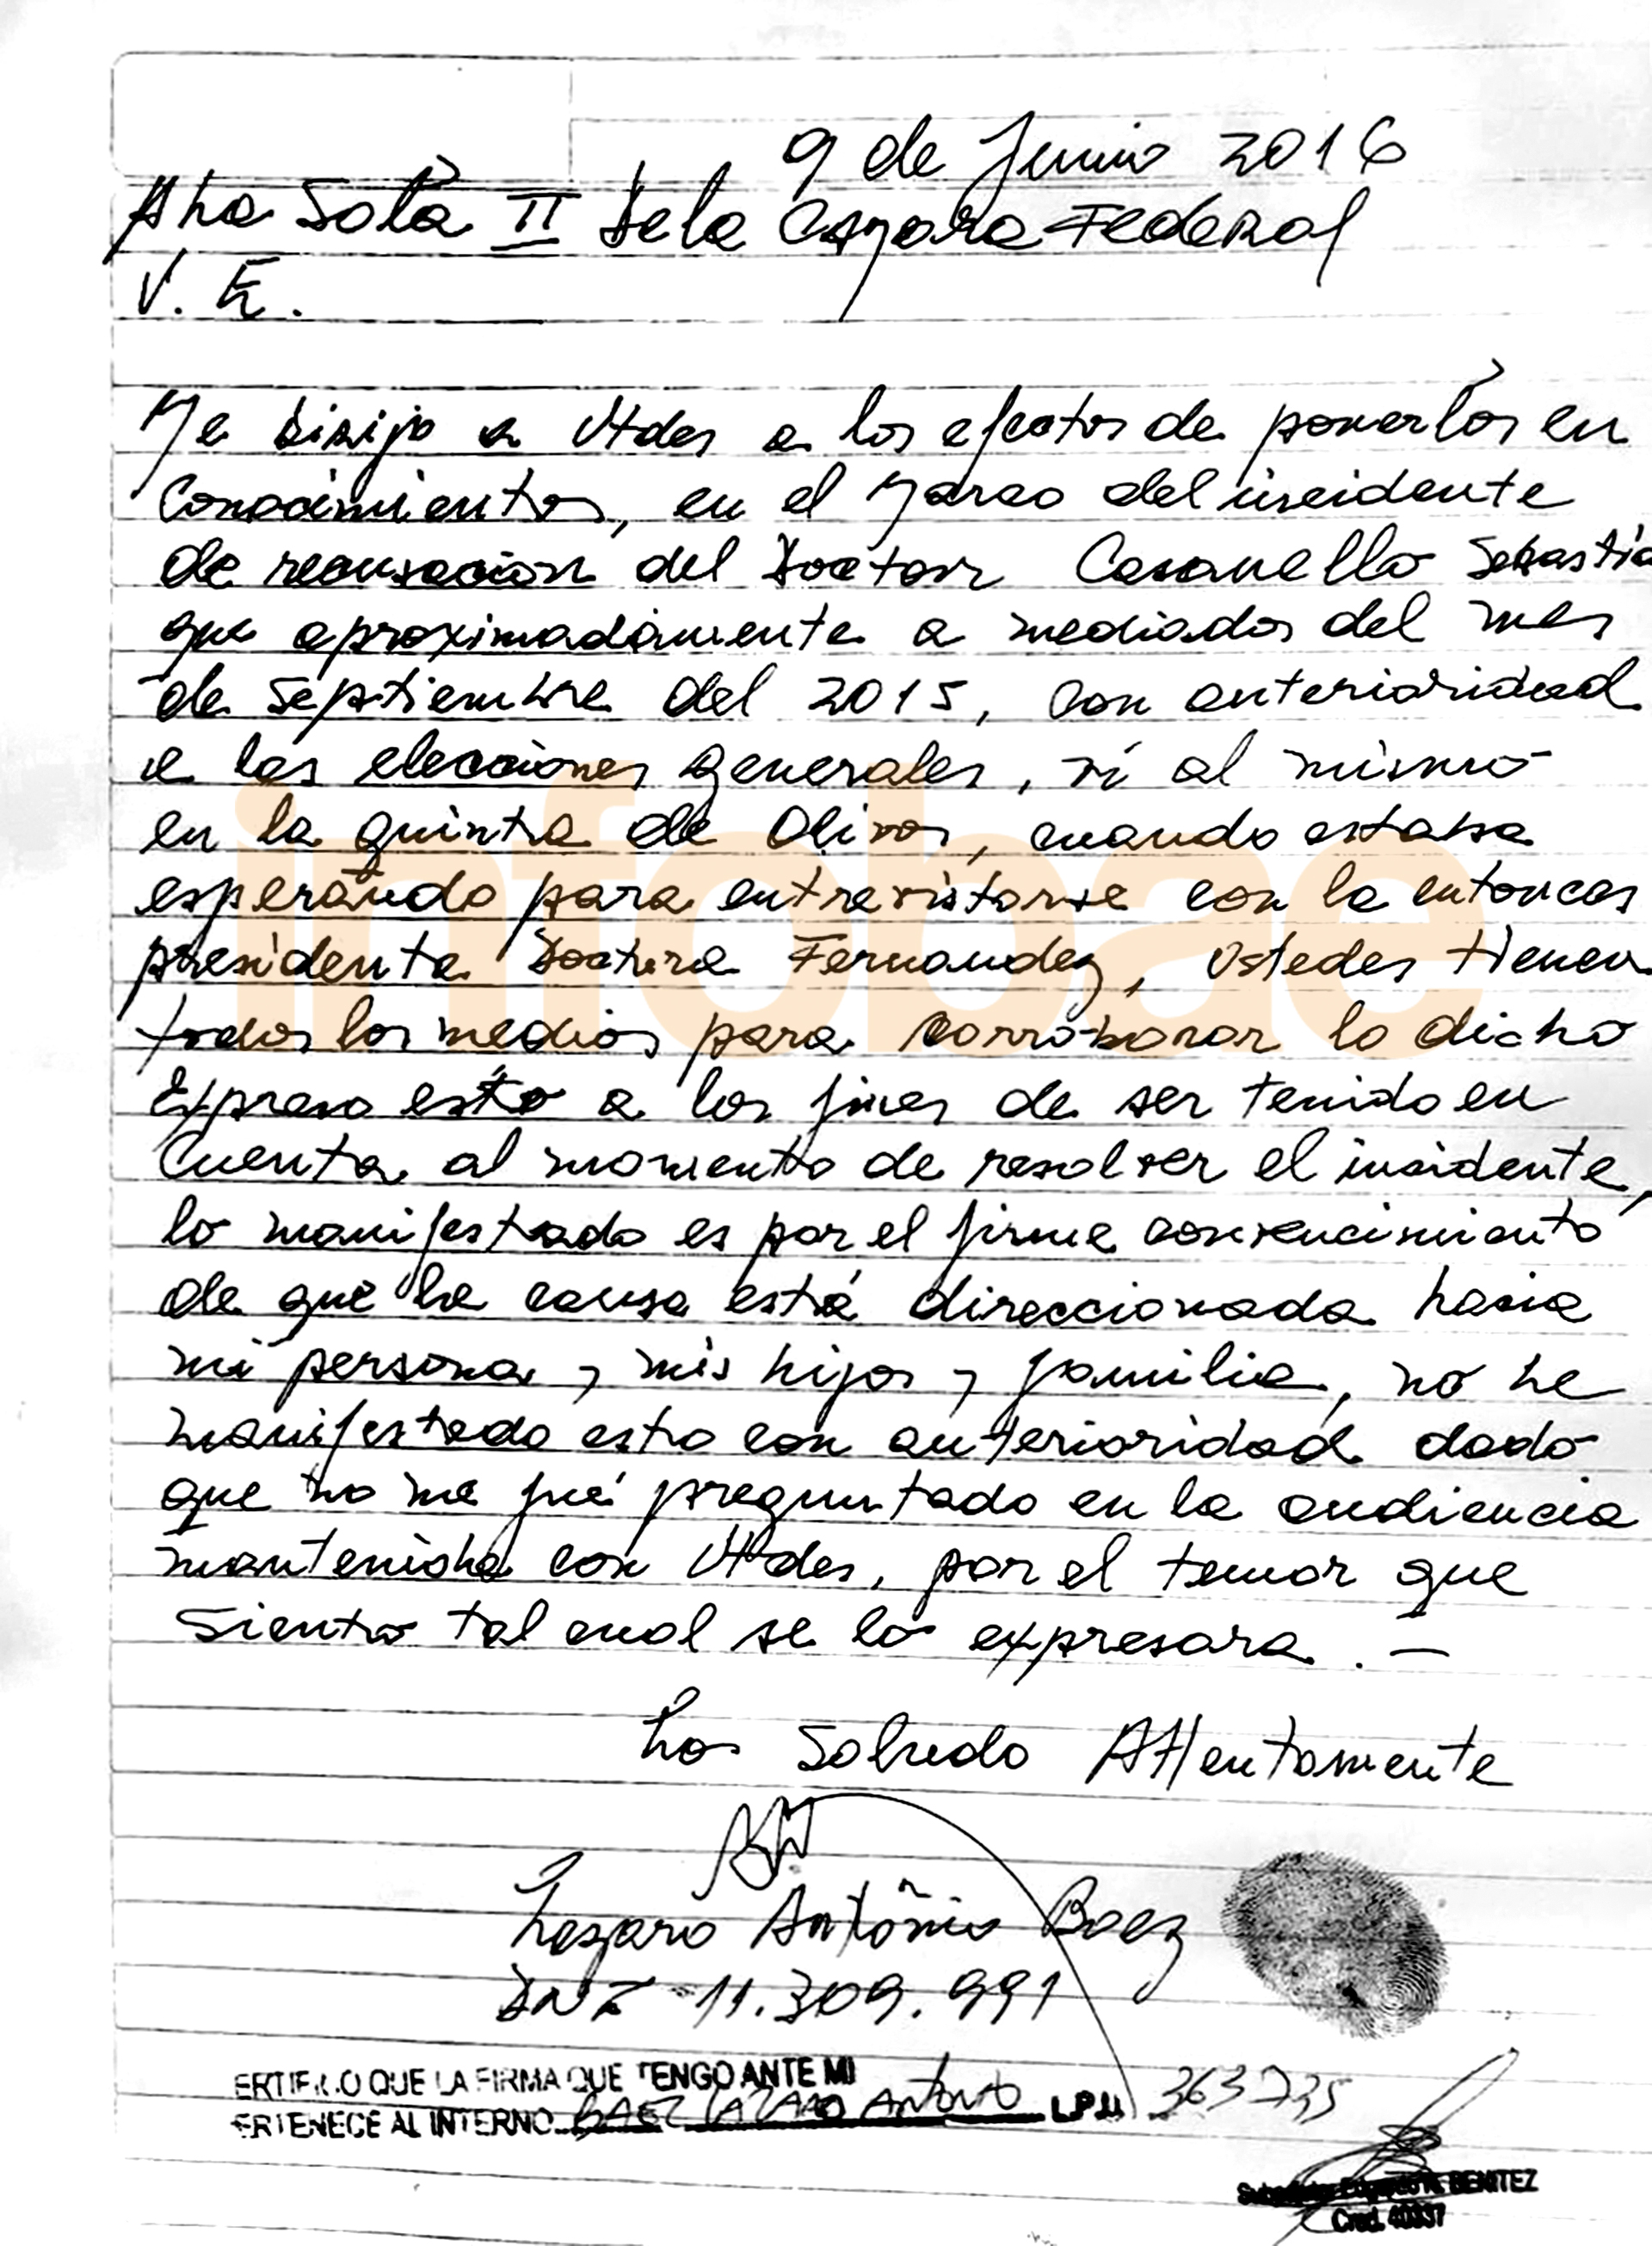 9 de Junio 2016
A la Sala II De la Camara Federal
V. E.
Me Dirijo a Ustedes a los efectos de ponerlos en
Conocimientos, en el Marco del insidente
de recusación del Doctor Casanello Sebastia
que aproximadamente a mediados del mes
de Septiembre del 2015, con anterioridad
a las elecciones generales, vi al mismo
en la quinta de Olivos, cuando estaba
esperando para entrevistarse con la entonces
presidenta Doctora Fernandez, Ustedes tienen
todos los medios para corroborar lo dicho
Expreso esto a los fines de ser tenido en
Cuenta al momento de resolver el insidente,
lo manifestado es por el firme convencimiento
de que la causa está direccionada hacia
mi persona y mis hijos y familia, no he
manifestado esto con anterioridad dado
que no me fué preguntado en la audiencia
mantenida con Ustedes, por el temor que
siento tal cual se lo expresara. —
Los Saludo Attentamente
Lazaro Antonio Baez
DNI 11.309.991
ERTIFICO QUE LA FIRMA QUE TENGO ANTE MI
ERTENECE AL INTERNO BAEZ LAZARO ANTONIO L.P.U 363735
BENITEZ
Cred. 40337
infobae